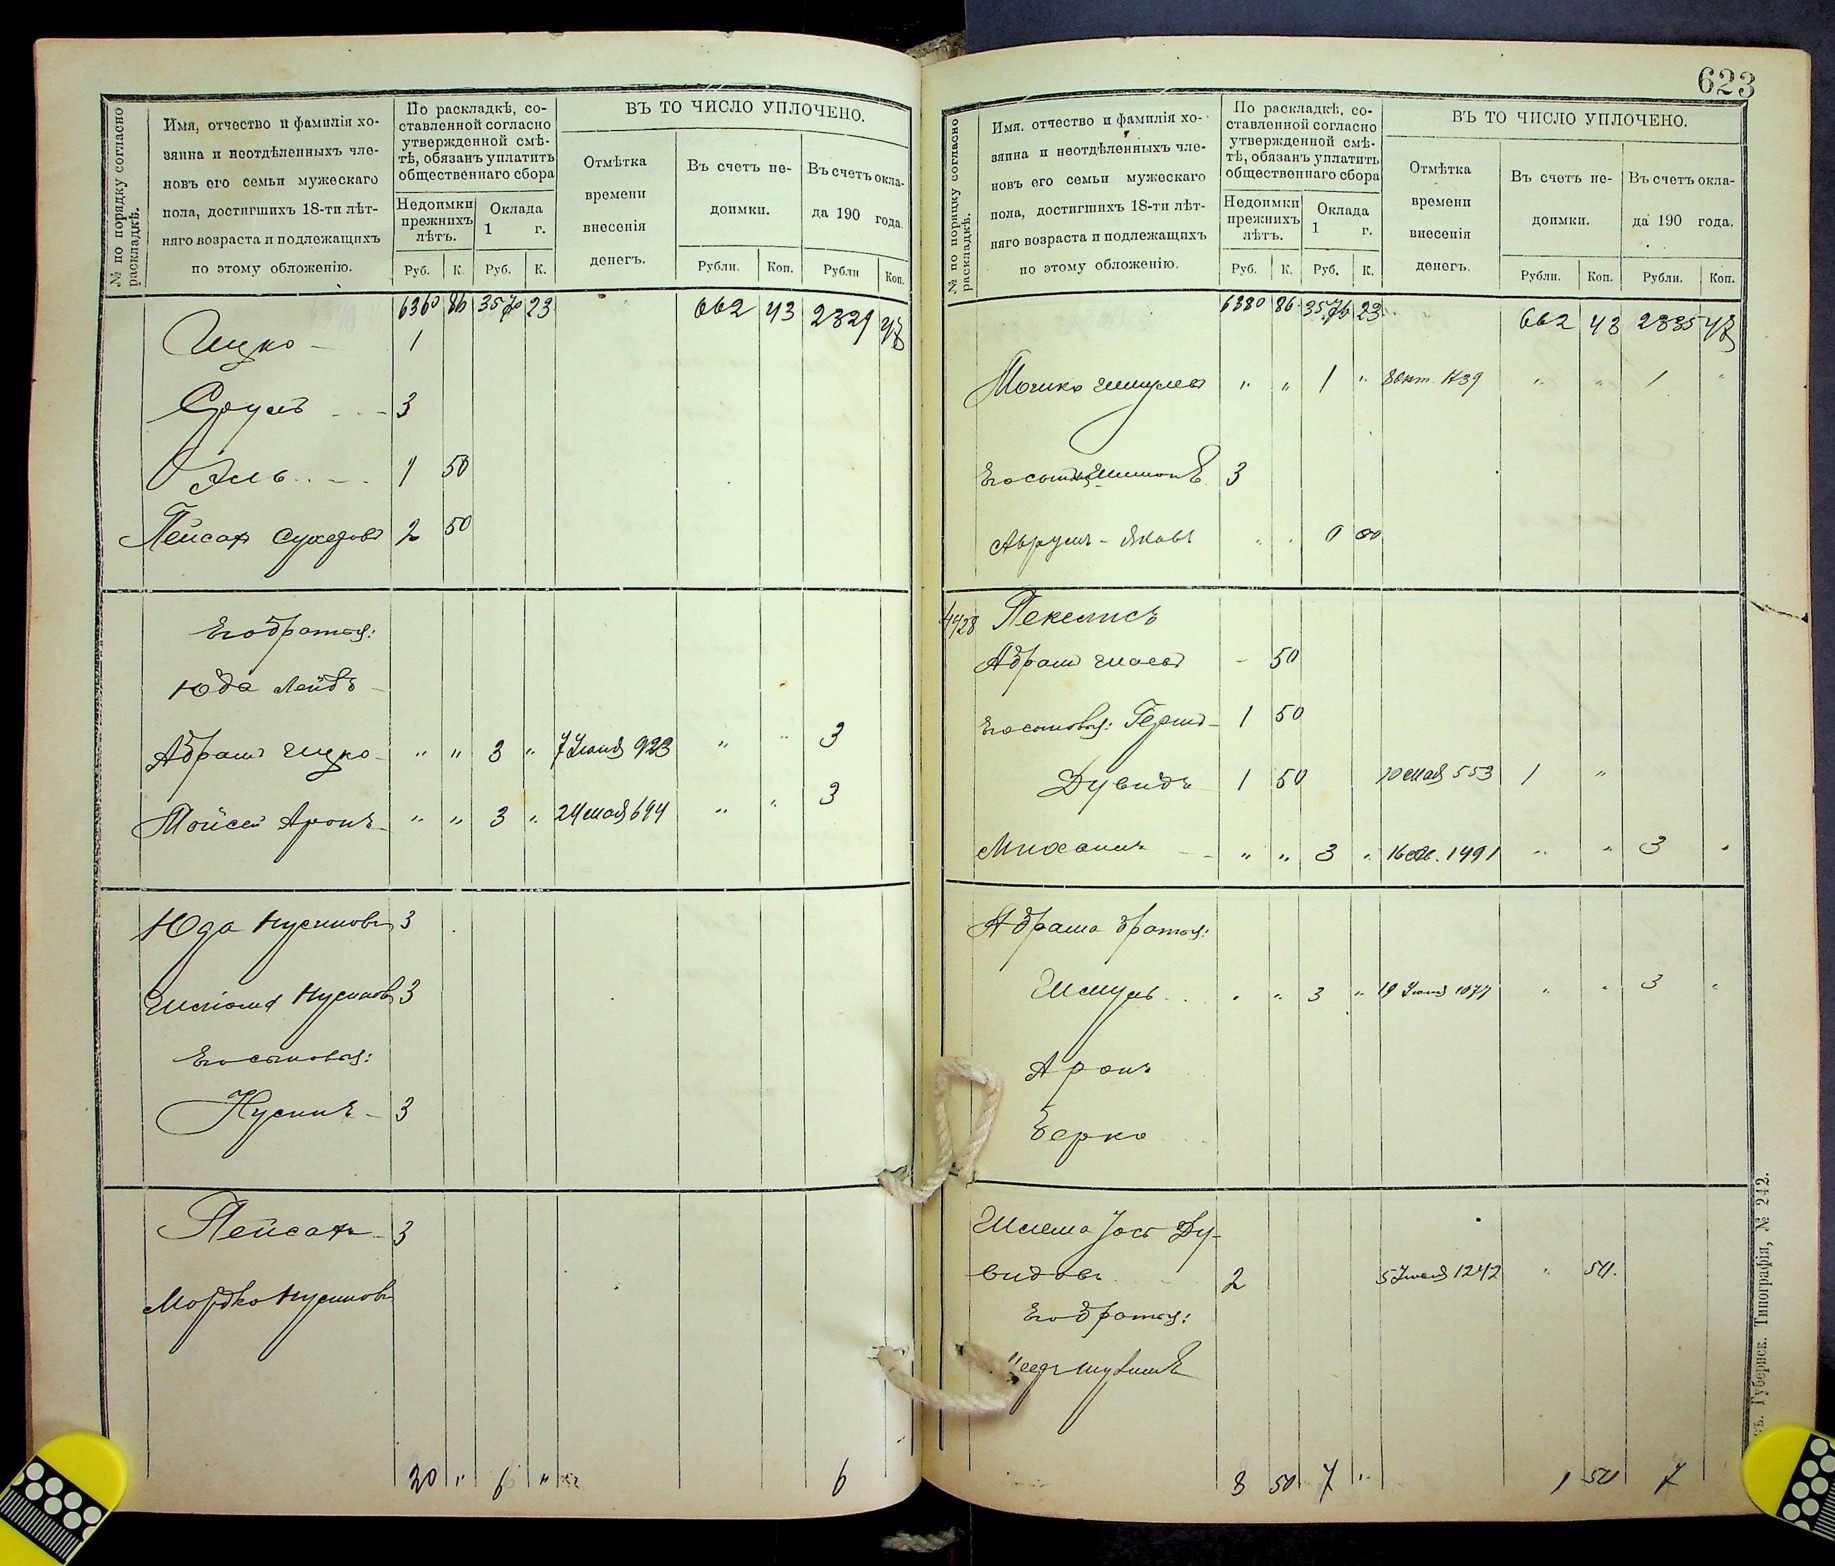 № по порядку согласно раскладкѣ.
Имя, отчество и фамилія хозяина и неотдѣленныхъ членовъ его семьи мужескаго пола, достигшихъ 18-ти лѣтняго возраста и подлежащихъ по этому обложенію.
По раскладкѣ, составленной согласно утвержденной смѣтѣ, обязанъ уплатить общественнаго сбора
Недоимки прежнихъ лѣтъ.
Оклада 1 г.
Руб. К. Руб. К.
ВЪ ТО ЧИСЛО УПЛОЧЕНО.
Отмѣтка времени внесенія денегъ.
Въ счетъ недоимки.
Въ счетъ оклада 190 года.
Рубли. Коп. Рубли Коп.
6360 86 3570 23 662 43 2329 47
Ицко 1
Сруль 3
Эль 1 50
Пейсах 2 50
Его братья:
Юда Лейбъ
Абрамъ Ицко " " 3 " 7 Іюня 923 " " 3
Мойсей Аронъ " " 3 " 24 мая 694 " " 3
Юда Нусиновъ 3
Нусиновъ 3
Его сыновья:
Нусинъ 3
Пейсахъ 3
Мордко Нусиновъ
20 " 6 " 6
623
№ по порядку согласно раскладкѣ.
Имя. отчество и фамилія хозяина и неотдѣленныхъ членовъ его семьи мужескаго пола, достигшихъ 18-ти лѣтняго возраста и подлежащихъ по этому обложенію.
По раскладкѣ, составленной согласно утвержденной смѣтѣ, обязанъ уплатить общественнаго сбора
Недоимки прежнихъ лѣтъ.
Оклада 1 г.
Руб. К. Руб. К.
ВЪ ТО ЧИСЛО УПЛОЧЕНО.
Отмѣтка времени внесенія денегъ.
Въ счетъ недоимки.
Въ счетъ оклада 190 года.
Рубли. Коп. Рубли. Коп.
6380 86 3576 23 662 43 2335 47
Мошко " " 1 " 8 окт. " " 1 "
3
Аврумъ - Яковъ " "
4428 Пекелисъ
Абрамъ - 50
Его сыновья: Герш 1 50
Дувидъ 1 50 10 мая 553 1 "
" " 3 " 1491 " " 3 "
Абрама братья:
Шмуль " " 3 " " " 3 "
Аронъ
Берко
Шлема Іось Дувидовъ 2 1242 " 50.
Его братья:
8 50 7 " 1 50 7
Губернск. Типографія, № 242.